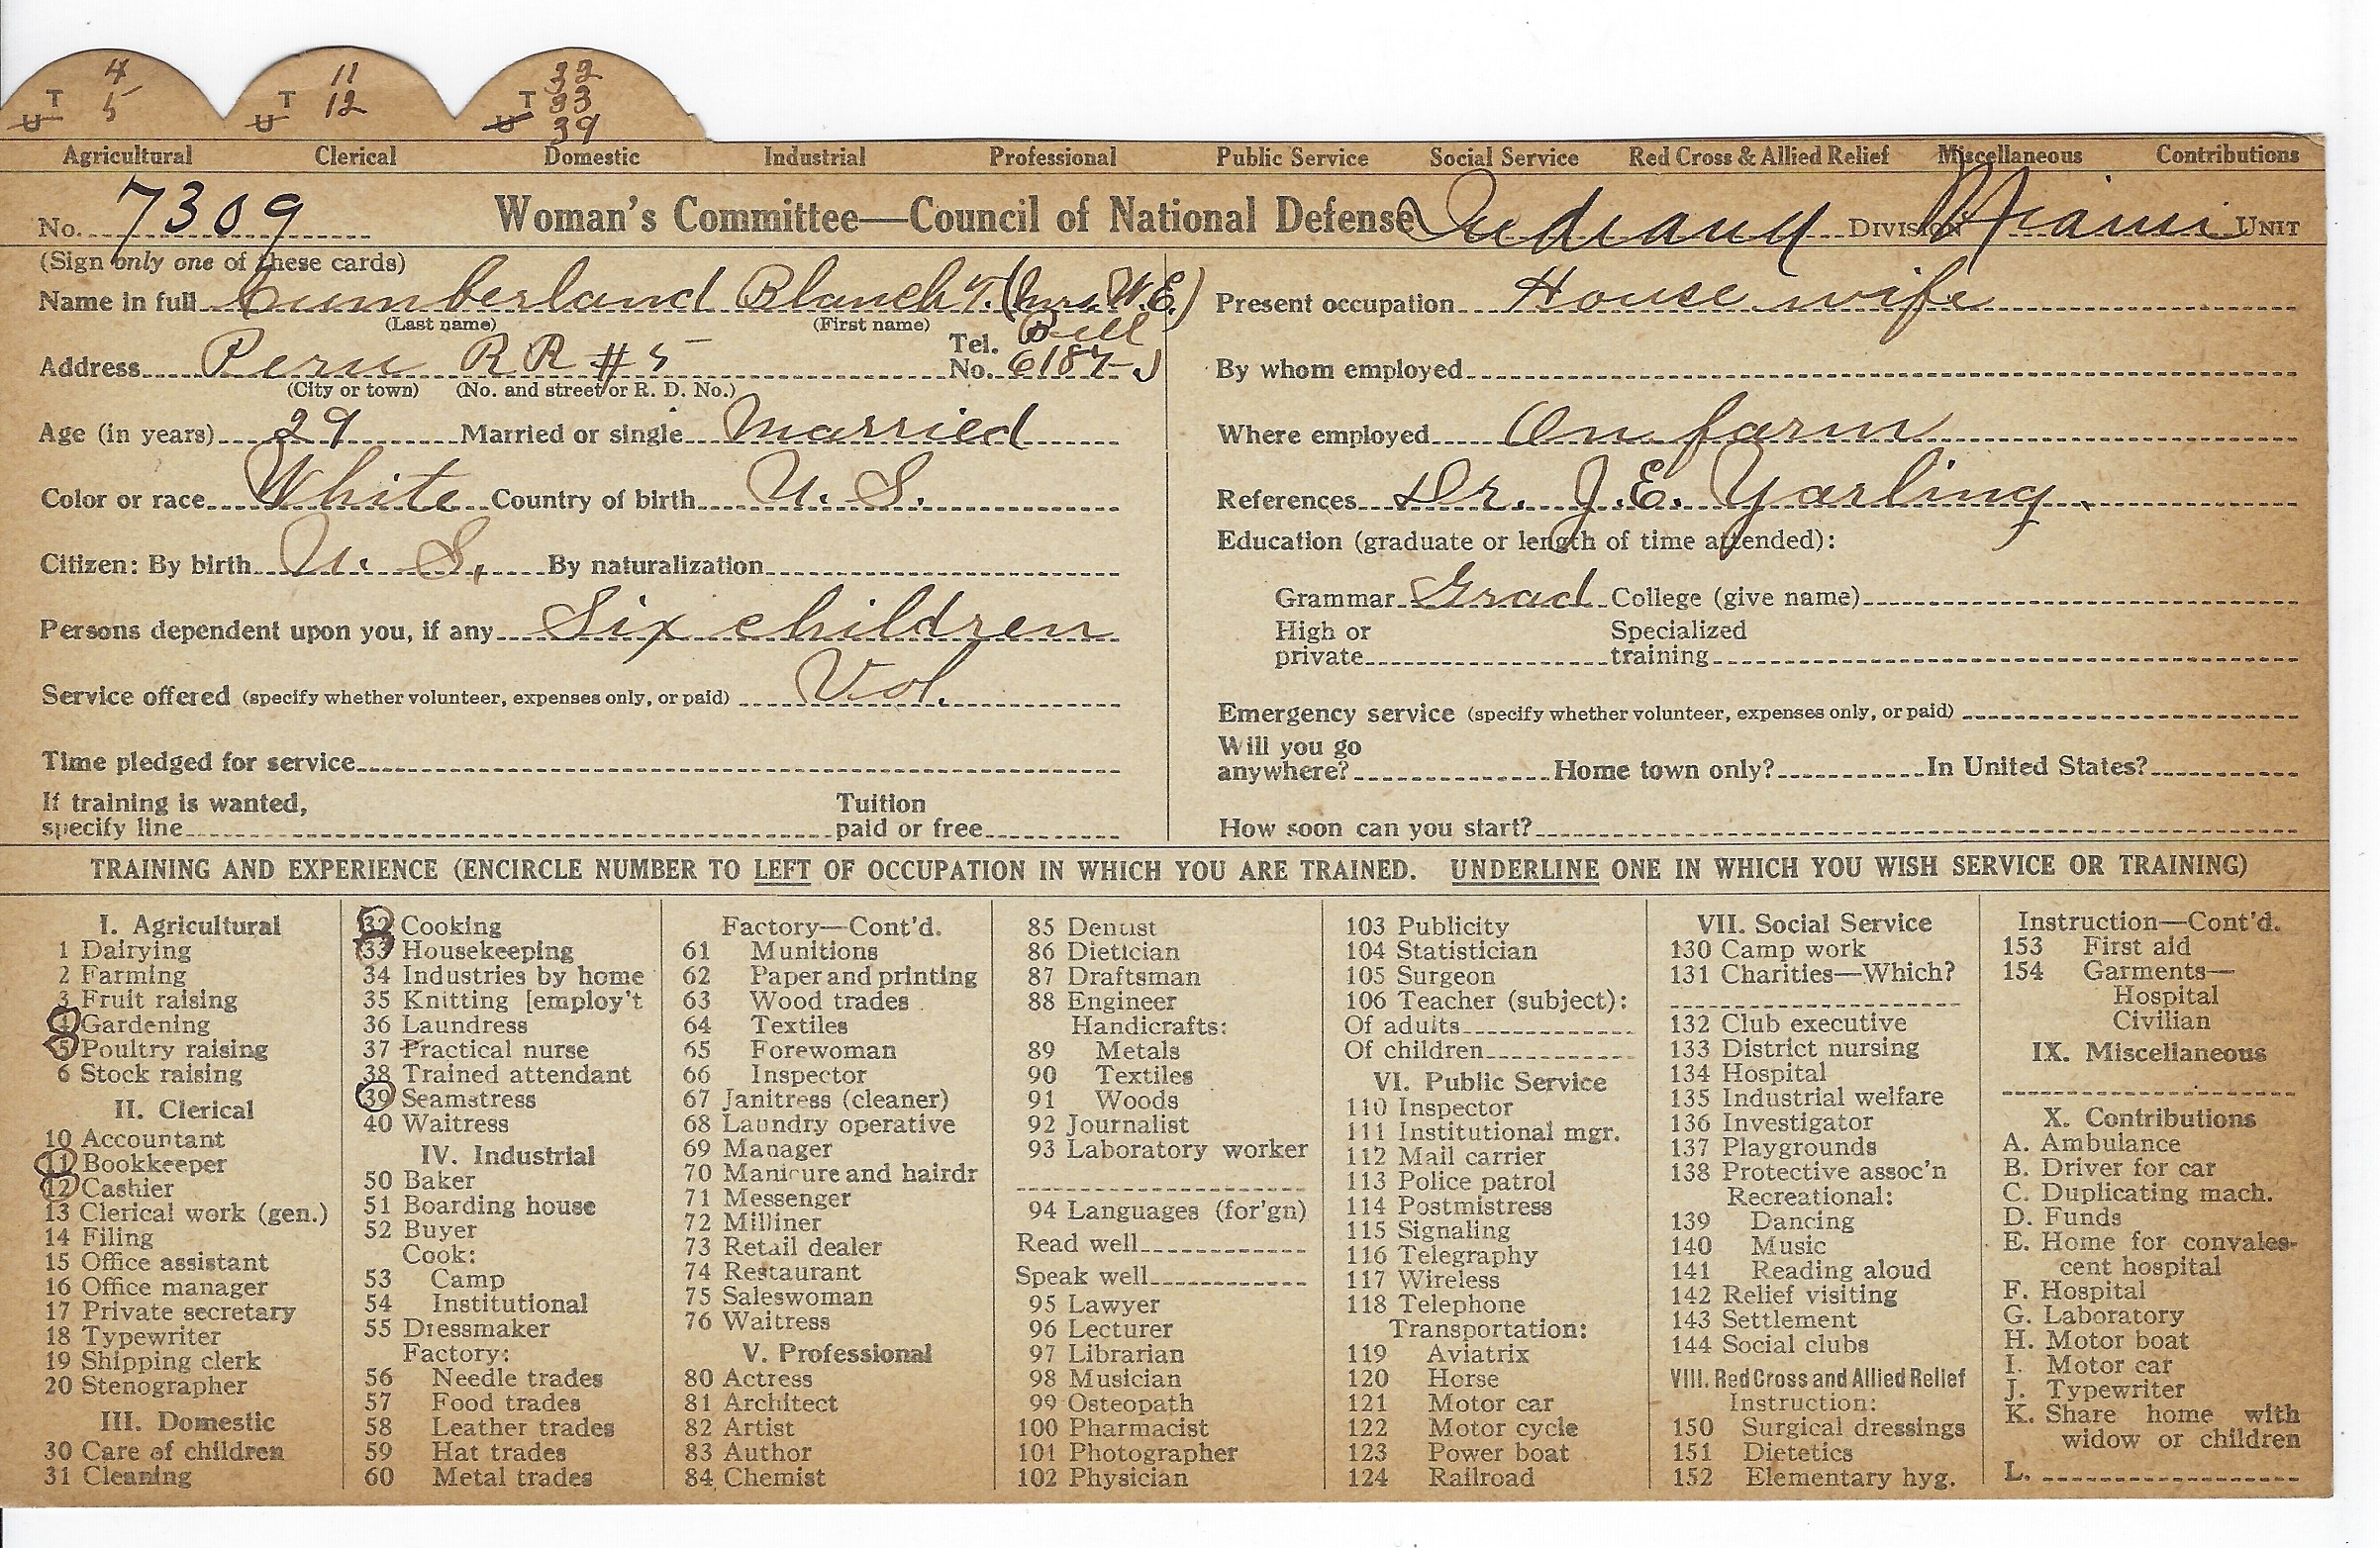 4 11 32
T 5 T 12 T 33
U U U 39
Agricultural Clerical Domestic Industrial Professional Public Service Social Service Red Cross & Allied Relief Miscellaneous Contributions
No. 7309 Woman's Committee—Council of National Defense Indiana Division Miami Unit
(Sign only one of these cards)
Name in full Cumberland Blanch T. (Mrs. W.E.)
(Last name) (First name)
Address Peru RR #5 Tel. No. Bell 6187-J
(City or town) (No. and street or R. D. No.)
Age (in years) 29 Married or single Married
Color or race White Country of birth U. S.
Citizen: By birth U. S. By naturalization
Persons dependent upon you, if any Six children
Service offered (specify whether volunteer, expenses only, or paid) Vol.
Time pledged for service
If training is wanted, Tuition
specify line paid or free
Present occupation House wife
By whom employed
Where employed On farm
References Dr. J.E. Yarling
Education (graduate or length of time attended):
Grammar Grad College (give name)
High or Specialized
private training
Emergency service (specify whether volunteer, expenses only, or paid)
Will you go
anywhere? Home town only? In United States?
How soon can you start?
TRAINING AND EXPERIENCE (ENCIRCLE NUMBER TO LEFT OF OCCUPATION IN WHICH YOU ARE TRAINED. UNDERLINE ONE IN WHICH YOU WISH SERVICE OR TRAINING)
I. Agricultural
1 Dairying
2 Farming
3 Fruit raising
4 Gardening
5 Poultry raising
6 Stock raising
II. Clerical
10 Accountant
11 Bookkeeper
12 Cashier
13 Clerical work (gen.)
14 Filing
15 Office assistant
16 Office manager
17 Private secretary
18 Typewriter
19 Shipping clerk
20 Stenographer
III. Domestic
30 Care of children
31 Cleaning
32 Cooking
33 Housekeeping
34 Industries by home
35 Knitting [employ't
36 Laundress
37 Practical nurse
38 Trained attendant
39 Seamstress
40 Waitress
IV. Industrial
50 Baker
51 Boarding house
52 Buyer
Cook:
53 Camp
54 Institutional
55 Dressmaker
Factory:
56 Needle trades
57 Food trades
58 Leather trades
59 Hat trades
60 Metal trades
Factory—Cont'd.
61 Munitions
62 Paper and printing
63 Wood trades
64 Textiles
65 Forewoman
66 Inspector
67 Janitress (cleaner)
68 Laundry operative
69 Manager
70 Manicure and hairdr
71 Messenger
72 Milliner
73 Retail dealer
74 Restaurant
75 Saleswoman
76 Waitress
V. Professional
80 Actress
81 Architect
82 Artist
83 Author
84 Chemist
85 Dentist
86 Dietician
87 Draftsman
88 Engineer
Handicrafts:
89 Metals
90 Textiles
91 Woods
92 Journalist
93 Laboratory worker
94 Languages (for'gn)
Read well
Speak well
95 Lawyer
96 Lecturer
97 Librarian
98 Musician
99 Osteopath
100 Pharmacist
101 Photographer
102 Physician
103 Publicity
104 Statistician
105 Surgeon
106 Teacher (subject):
Of adults
Of children
VI. Public Service
110 Inspector
111 Institutional mgr.
112 Mail carrier
113 Police patrol
114 Postmistress
115 Signaling
116 Telegraphy
117 Wireless
118 Telephone
Transportation:
119 Aviatrix
120 Horse
121 Motor car
122 Motor cycle
123 Power boat
124 Railroad
VII. Social Service
130 Camp work
131 Charities—Which?
132 Club executive
133 District nursing
134 Hospital
135 Industrial welfare
136 Investigator
137 Playgrounds
138 Protective assoc'n
Recreational:
139 Dancing
140 Music
141 Reading aloud
142 Relief visiting
143 Settlement
144 Social clubs
VIII. Red Cross and Allied Relief
Instruction:
150 Surgical dressings
151 Dietetics
152 Elementary hyg.
Instruction—Cont'd.
153 First aid
154 Garments—
Hospital
Civilian
IX. Miscellaneous
X. Contributions
A. Ambulance
B. Driver for car
C. Duplicating mach.
D. Funds
E. Home for convales-
cent hospital
F. Hospital
G. Laboratory
H. Motor boat
I. Motor car
J. Typewriter
K. Share home with
widow or children
L.